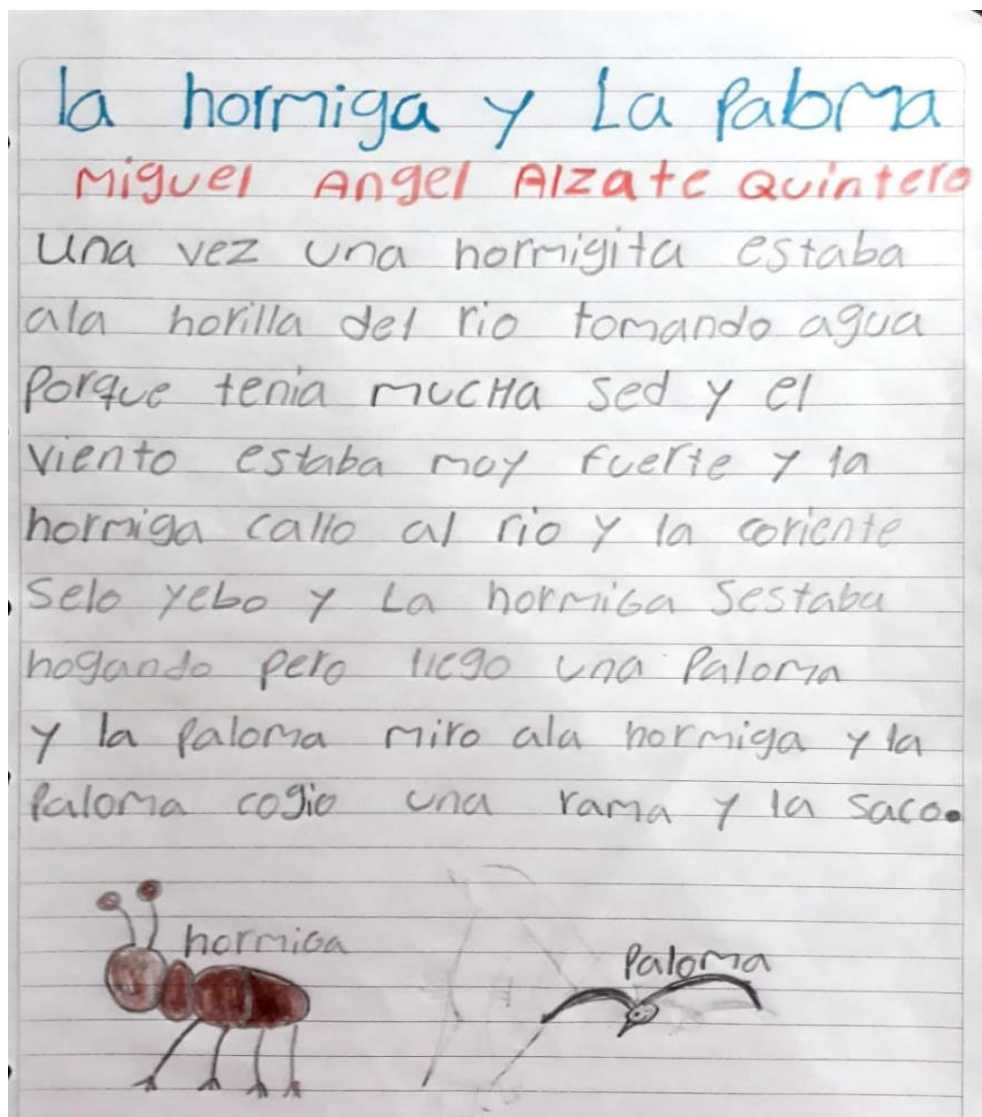 la hormiga y La Paloma
Miguel Angel Alzate Quintero
una vez una hormigita estaba
ala horilla del rio tomando agua
Porque tenia mucHa sed y el
viento estaba moy fuerte y la
hormiga callo al rio y la coriente
Selo yebo y La hormiGa Sestaba
hogando pero llego una Paloma
y la paloma miro ala hormiga y la
Paloma cogio una rama y la saco.
hormiGa
Paloma